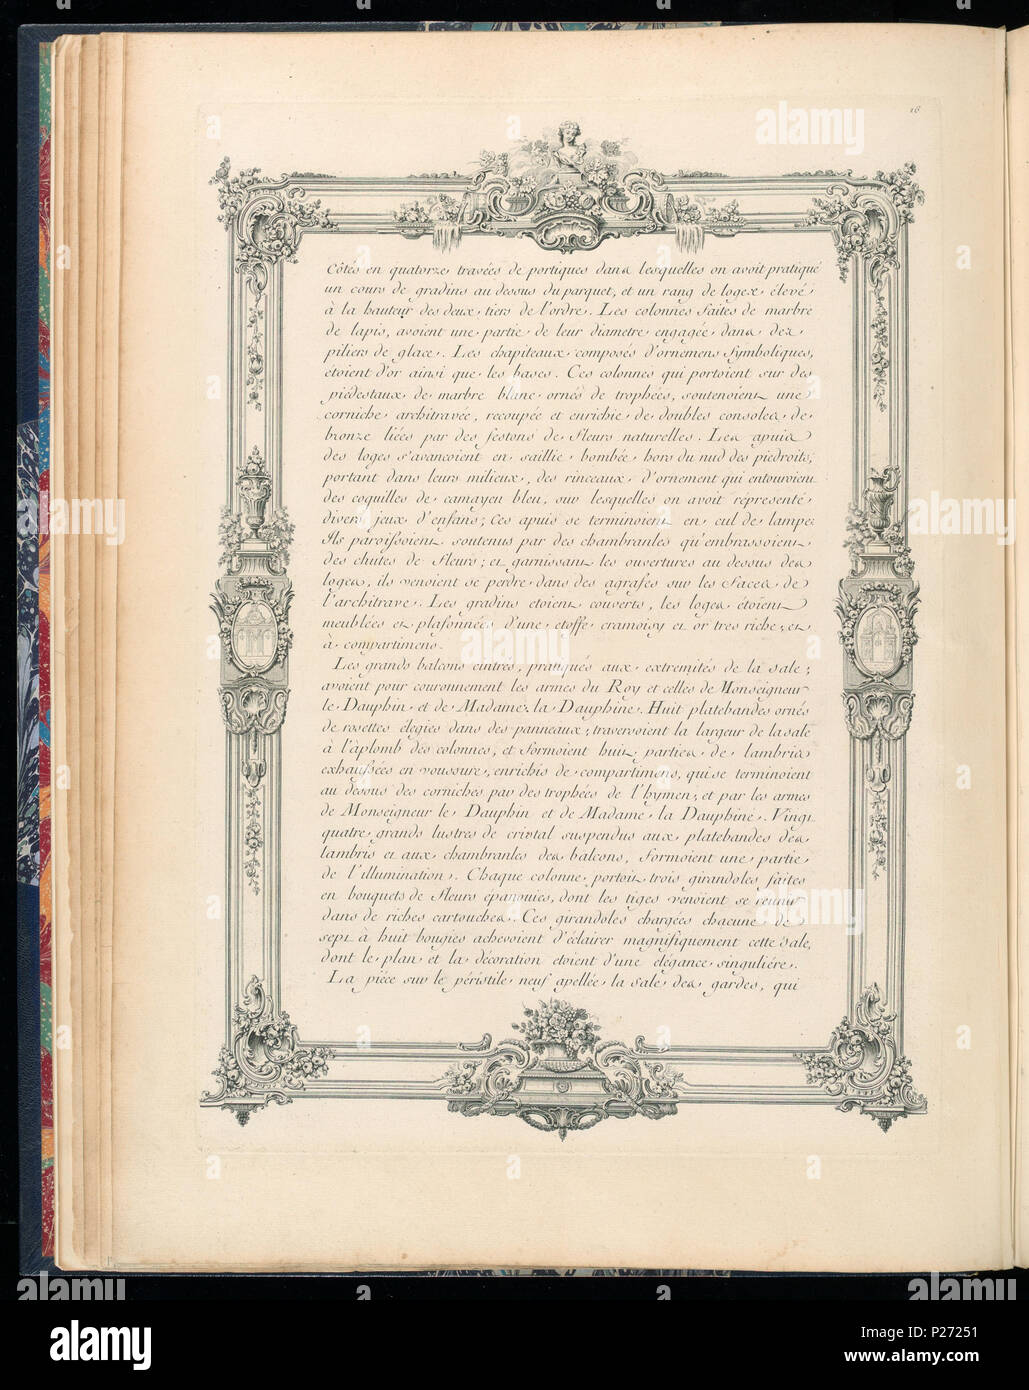 16
Côtés en quatorze travées de portiques dans lesquelles on avoit pratiqué
un cours de gradins au dessus du parquet, et un rang de loges élevé
à la hauteur des deux tiers de l'ordre. Les colonnes faites de marbre
de lapis, avoient une partie de leur diametre engagée dans des
piliers de glace. Les chapiteaux composés d'ornemens symboliques,
étoient d'or ainsi que les bases. Ces colonnes qui portoient sur des
piédestaux de marbre blanc ornés de trophées, soutenoient une
corniche architravée, recoupée et enrichie de doubles consoles de
bronze liées par des festons de fleurs naturelles. Les apuis
des loges s'avancoient en saillie bombée hors du nud des piedroits;
portant dans leurs milieux, des rinceaux d'ornement qui entouroient
des coquilles de camayeu bleu, sur lesquelles on avoit réprésenté
divers jeux d'enfans; Ces apuis se terminoient en cul de lampe:
Ils paroissoient soutenus par des chambranles qu'embrassoient
des chutes de fleurs; et garnissant les ouvertures au dessus des
loges, ils venoient se perdre dans des agrafes sur les faces de
l'architrave. Les gradins etoient couverts, les loges étoient
meublées et plafonnées d'une etoffe cramoisy et or tres riche, et
à compartimens.
Les grands balcons cintrés, pratiqués aux extremités de la sale;
avoient pour couronnement les armes du Roy et celles de Monseigneur
le Dauphin et de Madame la Dauphine. Huit platebandes ornés
de rosettes élegies dans des panneaux, traversoient la largeur de la sale
à l'àplomb des colonnes, et formoient huit parties de lambris
exhaussées en voussure, enrichis de compartimens, qui se terminoient
au dessus des corniches par des trophées de l'hymen, et par les armes
de Monseigneur le Dauphin et de Madame la Dauphine. Vingt
quatre grands lustres de cristal suspendus aux platebandes des
lambris et aux chambranles des balcons, formoient une partie
de l'illumination. Chaque colonne portoit trois girandoles faites
en bouquets de fleurs épanouies, dont les tiges venoient se reunir
dans de riches cartouches. Ces girandoles chargées chacune de
sept à huit bougies achevoient d'éclairer magnifiquement cette sale,
dont le plan et la décoration etoient d'une elégance singuliére.
La piéce sur le péristile neuf apellée la sale des gardes, qui
alamy
a
alamy
a
a
a
alamy
a
alamy
alamy
Image ID: P27251
www.alamy.com